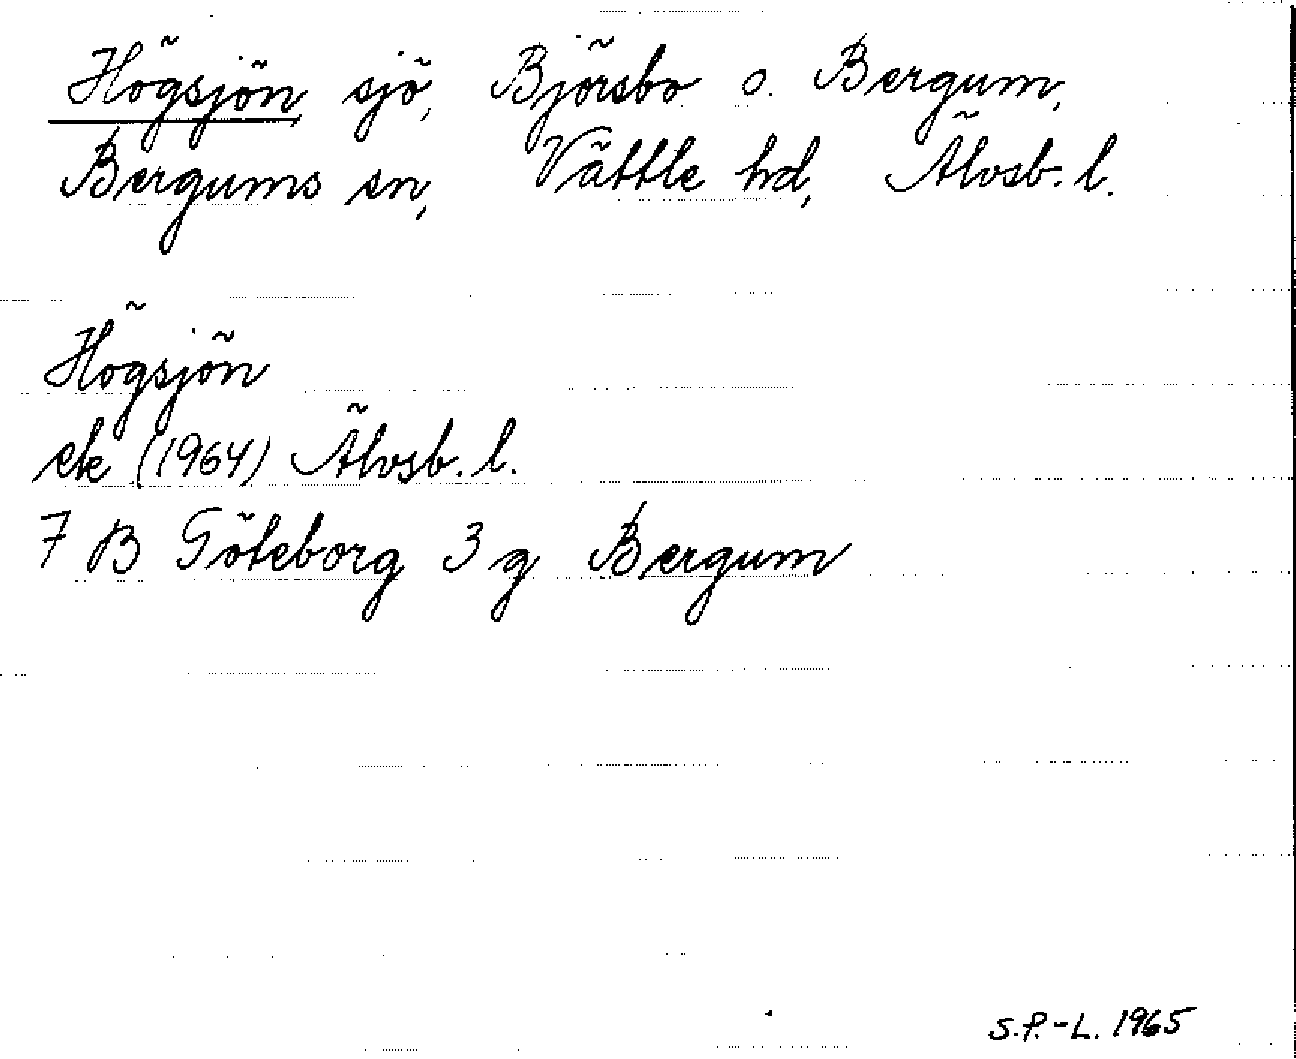 Högsjön, sjö, Björsbo o. Bergum,
Bergums sn, Vättle hd, Älvsb. l.
Högsjön
ek (1964) Älvsb. l.
7 B Göteborg 3 g Bergum
S.P.-L. 1965